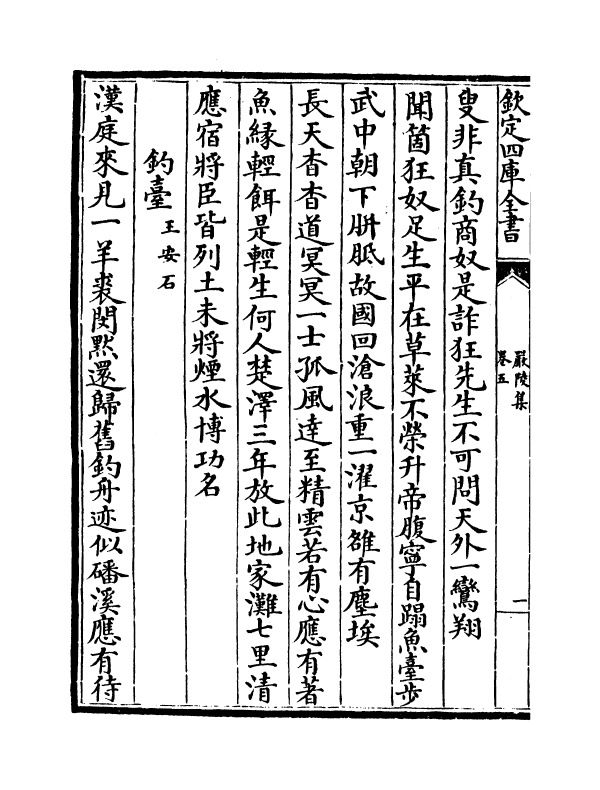 欽定四庫全書
嚴陵集
卷五
一
叟非真釣商奴是詐狂先生不可問天外一鸞翔
聞箇狂奴足生平在草萊不榮升帝腹寧自蹋魚臺步
武中朝下胼胝故國回滄浪重一濯京雒有塵埃
長天杳杳道冥冥一士孤風達至精雲若有心應有著
魚緣輕餌是輕生何人楚澤三年放此地家灘七里清
應宿將臣皆列土未將煙水博功名
釣臺王安石
漢庭來見一羊裘閔黙還歸舊釣舟迹似磻溪應有待